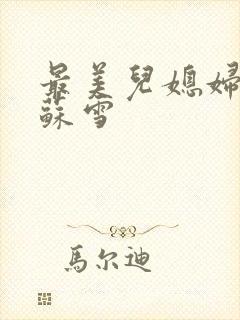 最美兒媳婦
蘇雪
馬尔迪